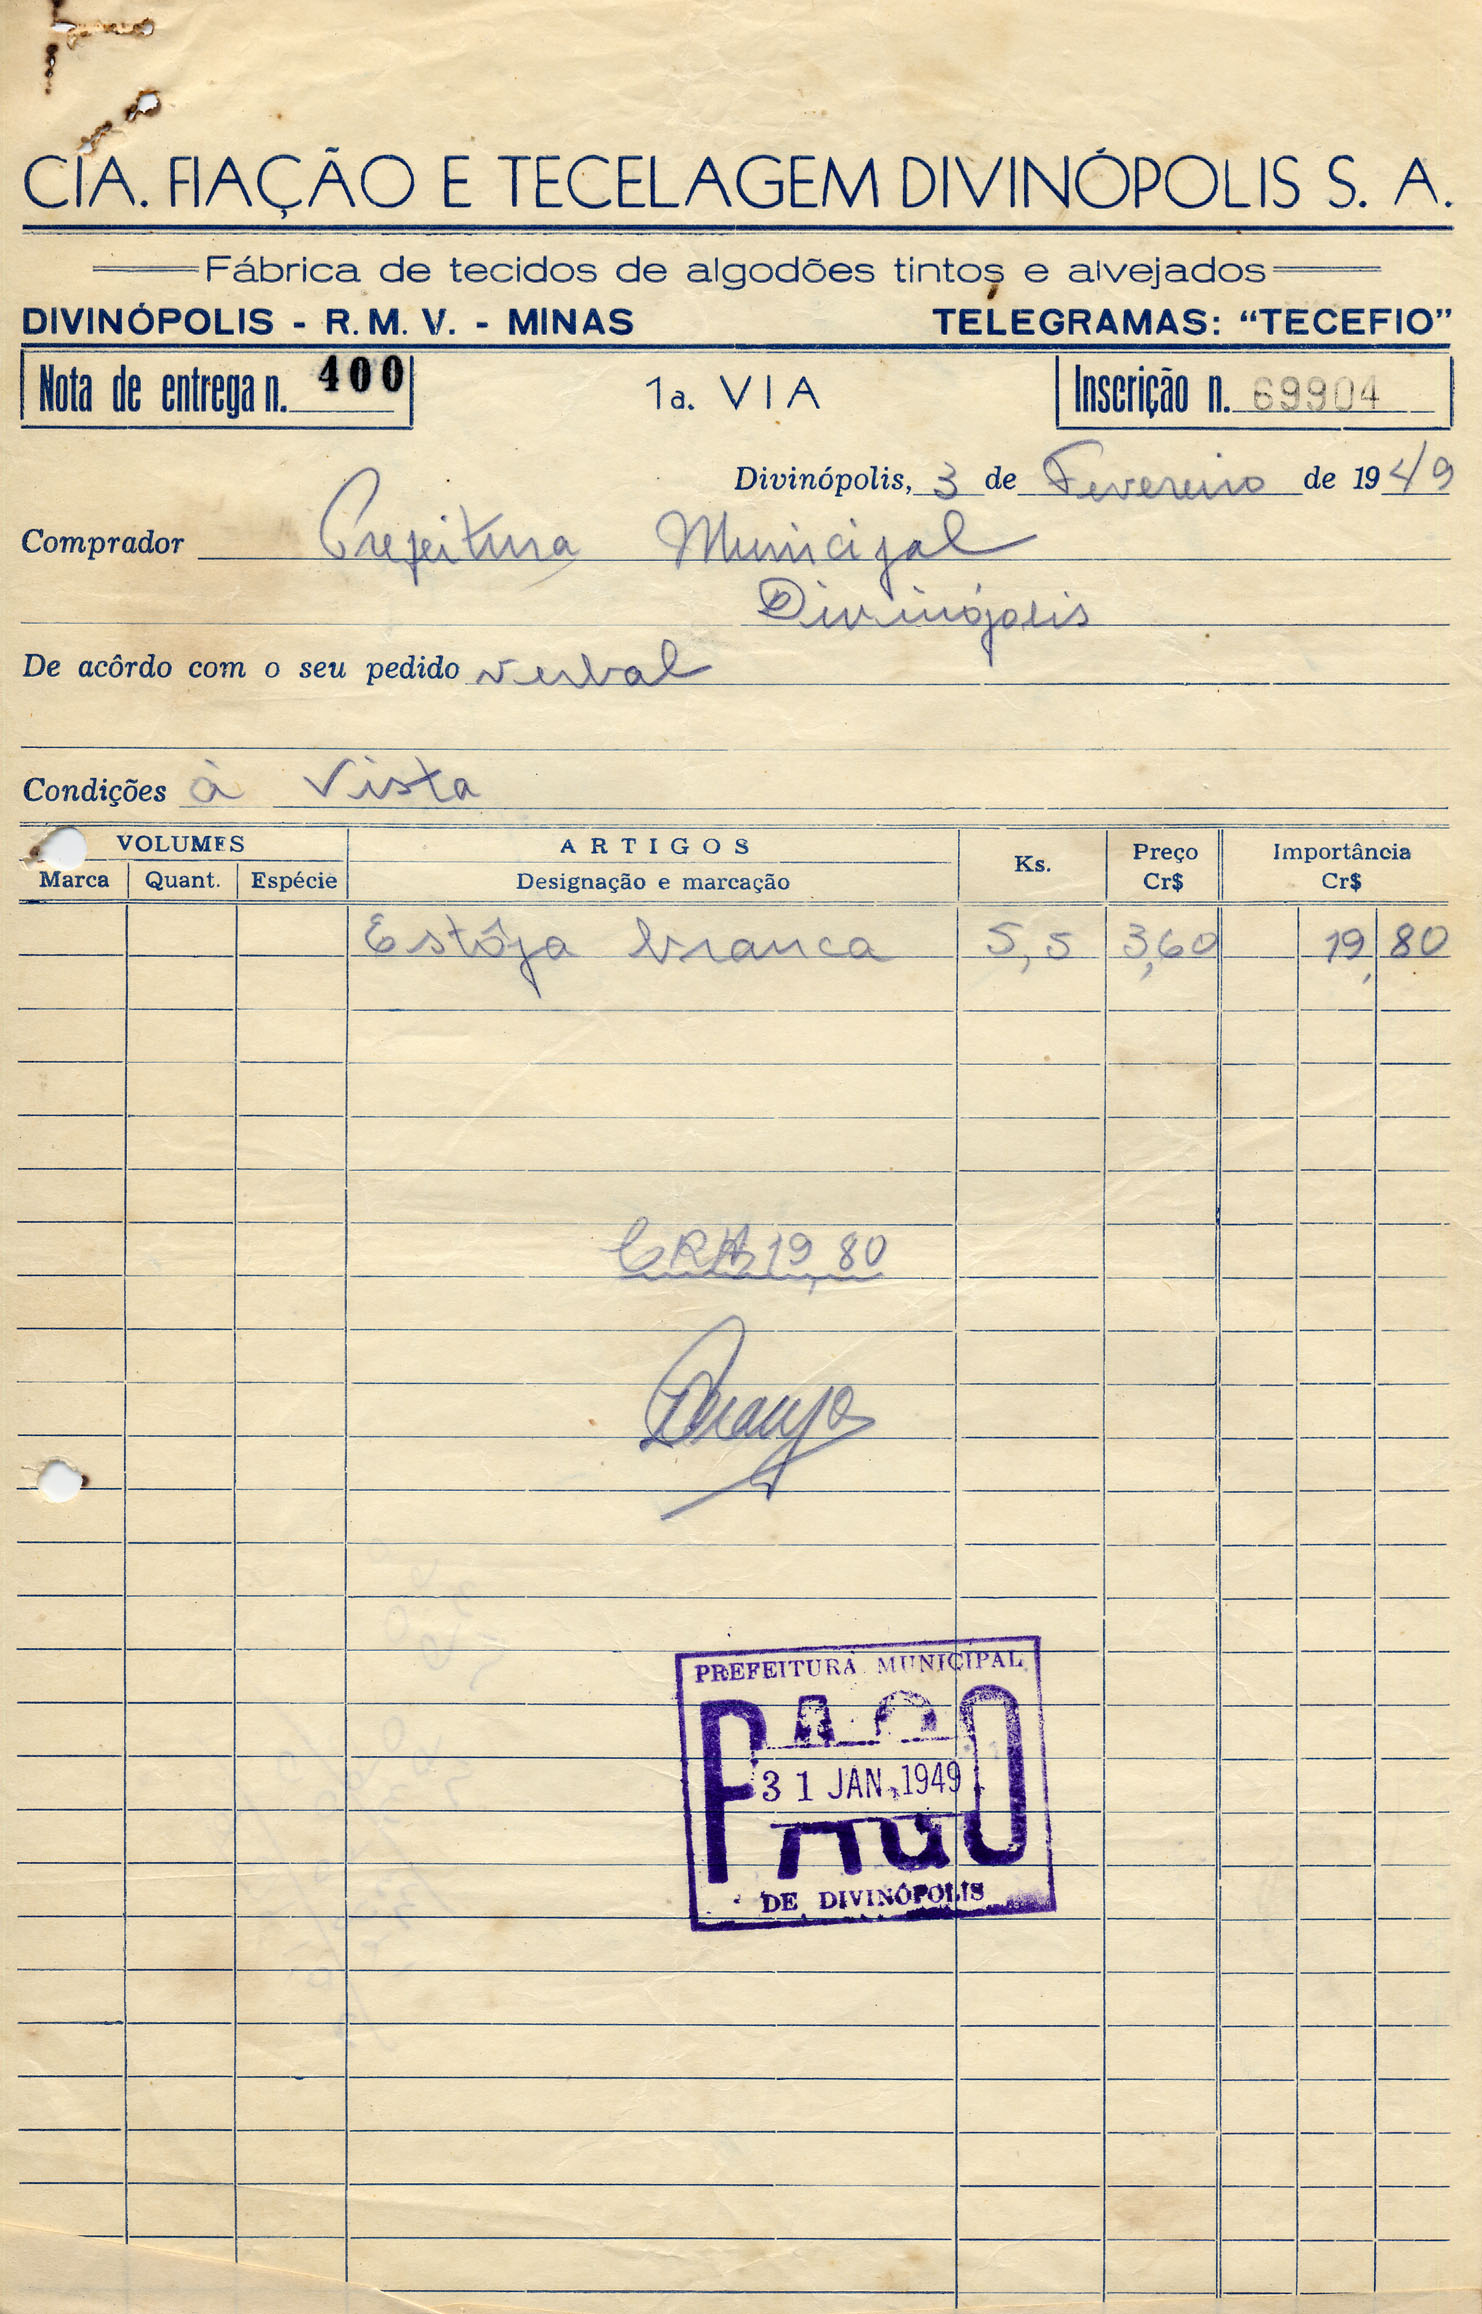 CIA. FIAÇÃO E TECELAGEM DIVINÓPOLIS S. A.
Fábrica de tecidos de algodões tintos e alvejados
DIVINÓPOLIS - R. M. V. - MINAS TELEGRAMAS: “TECEFIO”
Nota de entrega n. 400 1a. VIA Inscrição n. 69904
Divinópolis, 3 de Fevereiro de 1949
Comprador Prefeitura Municipal
Divinópolis
De acôrdo com o seu pedido verbal
Condições à Vista
VOLUMES ARTIGOS Ks. Preço Cr$ Importância Cr$
Marca Quant. Espécie Designação e marcação
Estôpa branca 5,5 3,60 19,80
CR$ 19,80
Araujo
PREFEITURA MUNICIPAL
PAGO
31 JAN. 1949
DE DIVINÓPOLIS